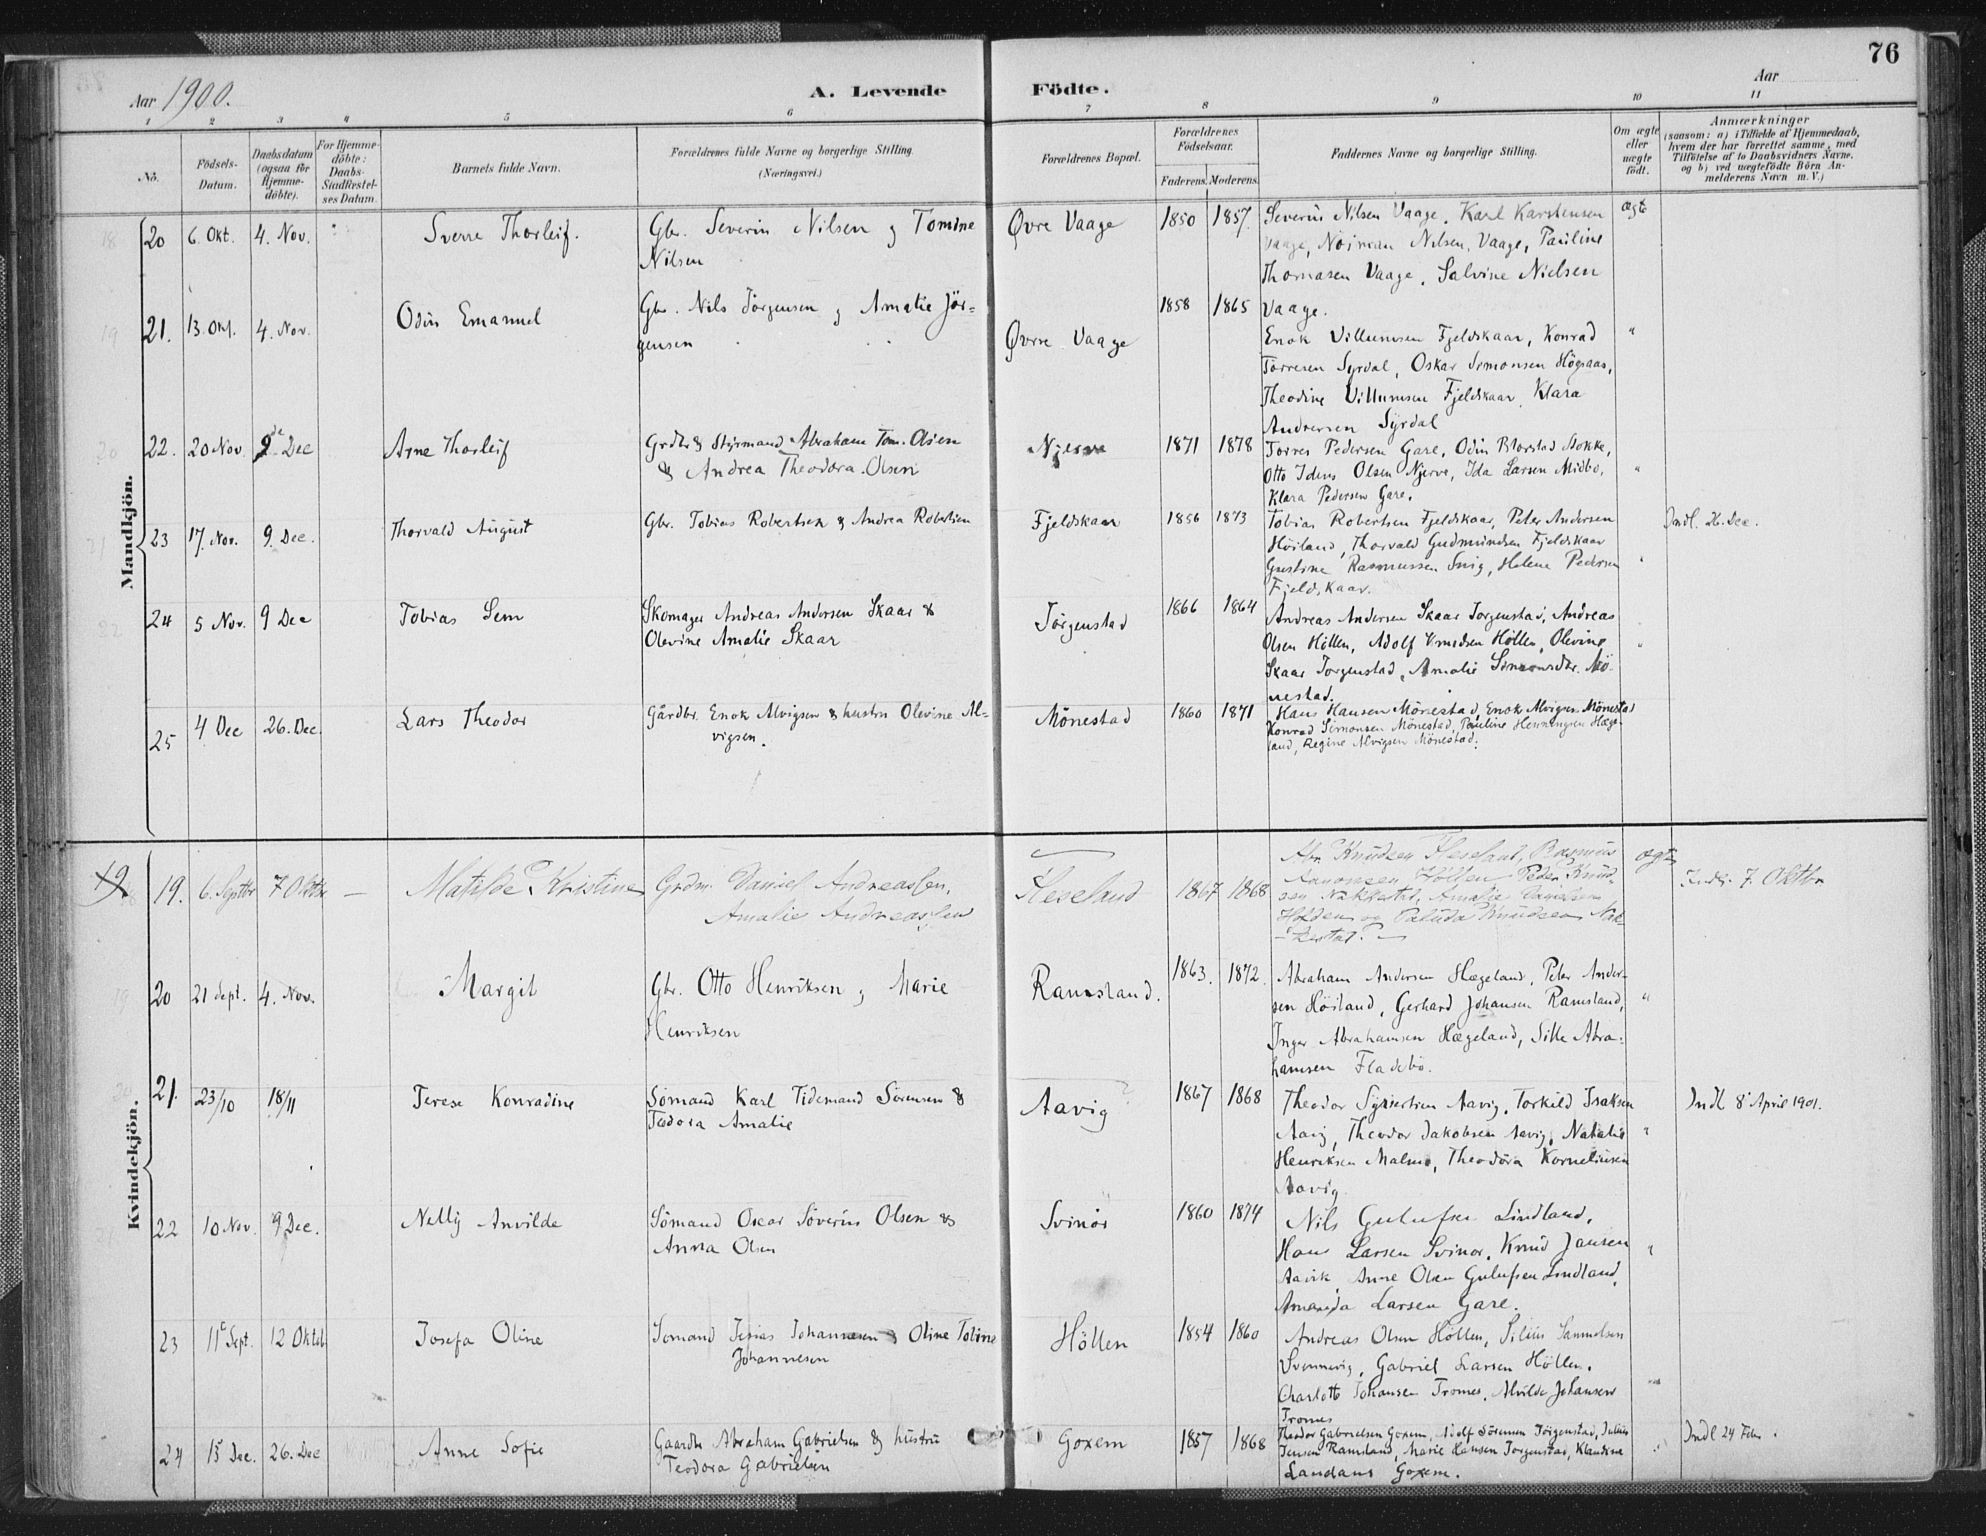 76
Aar 1900.
A. Levende Födte.
Aar
1 2 3 4 5 6 7 8 9 10 11
No.
Födsels-Datum.
Daabsdatum (ogsaa för Hjemme-döbte).
For Hjemme-döbte: Daabs-Stadfæstel-ses Datum.
Barnets fulde Navn.
Forældrenes fulde Navne og borgerlige Stilling.
(Næringsvei.)
Forældrenes Bopæl.
Forældrenes Födselsaar.
Faderens. Moderens.
Faddernes Navne og borgerlige Stilling.
Om ægte eller uægte födt.
Anmærkninger
(saasom: a) i Tilfælde af Hjemmedaab,
hvem der har forrettet samme, med
Tilföielse af to Daabsvidners Navne,
og b) ved uægtefödte Börn An-
melderens Navn m. V.)
Mandkjön.
20 6. Okt. 4. Nov. Sverre Thorleif. Gbr. Severin Nilsen og Tomine
Nilsen
Øvre Vaage 1850 1857. Severin Nilsen Vaage, Karl Karstensen ægte
Vaage, Nilsen, Vaage, Pauline
Thomasen Vaage, Salvine Nielsen
Vaage.
21. 13. Okt. 4. Nov. Odin Emanuel Gbr. Nils Jörgensen og Amalie Jör-
gensen
Øvre Vaage 1858 1865
Enok Villumsen Fjeldskaar, Konrad "
Torresen Syrdal, Oskar Simonsen Högsaas,
Theodine Villumsen Fjeldskaar, Klara
Andersen Syrdal
22. 20 Nov. 9de Dec Arne Thorleif Grdbr & Styrmand Abraham Tom. Olsen
& Andrea Theodora Olsen
Njerve 1871 1878 Torres Pedersen Gare, Odin Stokke,
Otto Olsen Njerve, Ida Larsen Midbö, "
Klara Pedersen Gare.
23 17. Nov. 9. Dec. Thorvald August Gbr. Tobias Robertsen & Andrea Robertsen
Fjeldskaar 1856 1873 Tobias Robertsen Fjeldskaar, Peter Andersen Indl. 26. Dec.
Höiland, Thorvald Gudmundsen Fjeldskaar
Gustine Rasmussen Snig, Helene Pedersen "
Fjeldskaar.
24 5 Nov. 9 Dec Tobias Sem Skomager Andreas Andersen Skaar &
Olevine Amalie Skaar
Jörgenstad 1866 1864 Andreas Andersen Skaar Jorgenstad, Andreas
Olsen Höllen, Adolf Knudsen Höllen, Olevine "
Skaar Jorgenstad, Amalie Simonsdtr. Mö-
nestad.
25 4 Dec 26. Dec. Lars Theodor Gårdbr. Enok Alvigsen & hustru Olevine Al-
vigsen.
Mönestad 1860 1871 Hans Hansen Mönestad, Enok Alvigsen Mönestad
Konrad Simonsen Mönestad, Pauline Henningsen Hæge-
land, Regine Alvigsen Mönestad.
Kvindekjön.
19 19. 6. Septbr 7 Oktbr — Matilde Kristine Grdm. Daniel Andreassen,
Amalie Andreassen
Heseland 1867 1868 Abr. Knudsen Heseland, Rasmus ægte Indl. 7. Oktbr
Aanonsen Höllen Peder Knud-
sen Nakkestad, Amalie Danielsen
Holden og Palida Knudsen Nak-
kestad.
20 21 Sept. 4. Nov. Margit Gbr. Otto Henriksen og Marie
Henriksen
Ramsland. 1863. 1872. Abraham Andersen Hægeland, Peter Ander-
sen Höiland, Gerhard Johansen Ramsland, "
Inger Abrahamsen Hægeland, Sille Abra-
hamsen Fladebö.
21. 23/10 18/11 Terese Konradine Sömand Karl Tidemand Sörensen &
Teodora Amalie
Aavig 1867 1868 Theodor Aavig, Torkild Isaksen Indl 8 April 1901.
Aavig, Theodor Jakobsen Aavig, Natalie "
Henriksen Malmö, Theodora Korneliusen
Aavig
22 10 Nov. 9. Dec. Nelly Anvilde Sömand Oscar Söverin Olsen &
Anna Olsen
Svinör 1860 1874 Nils Gulufsen Lindland,
Hans Larsen Svinor, Knud Jansen "
Aavik, Anne Olsen Gulufsen Lindland,
Amanda Larsen Gare.
23 11te Sept. 12 Oktob Josefa Oline Somand Johannesen & Oline Toline
Johannesen
Höllen 1854 1860 Andreas Olsen Höllen, Silius Samuelsen
Svennevig, Gabriel Larsen Höllen.
Charlotte Johansen Tromes, Alvilde Johansen "
Tromes
24 15 Dec. 26. Dec Anne Sofie Gaardbr Abraham Gabrielsen & hustru
Teodora Gabrielsen
Goxem 1857 1868 Theodor Gabrielsen Goxem, Adolf Sörensen Jörgenstad, Julius Indl 24 Febr.
Jensen Ramsland, Marie Hansen Jorgenstad, Klaudine "
Landaas Goxem.